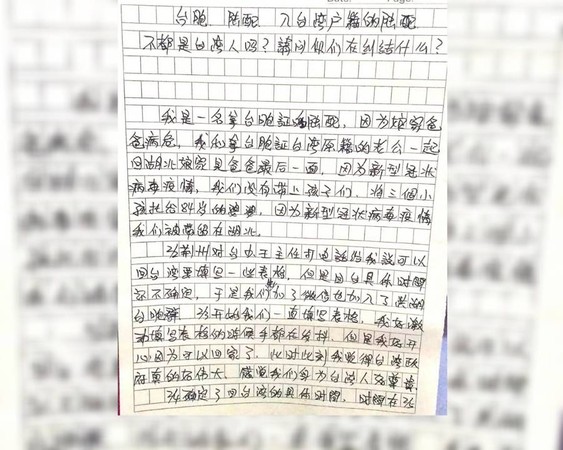 台胞、陆配、入台湾户籍的陆配
不都是台湾人吗？请问你们在纠结什么？
我是一名拿台胞証的陆配，因为娘家爸
爸病危，我和拿台胞証台湾原籍的老公一起
回湖北娘家見爸爸最后一面，因为新型冠状
病毒疫情，我们没有带上孩子们，将三個小
孩托给84岁的婆婆，因为新型冠状病毒疫情
我们被滯留在湖北。
荆州对台办王主任打电話给我説可以
回台湾要填写一些表格，但是回台具体时间
还不确定，于是我们加了微信也加入了
台胞群。2/3开始我们一直填写表格，我在
填写表格的时候手都在发抖，但是我好开
心因为可以回家了，此时此刻我觉得台湾政
府真的好伟大，感覚我们身为台湾人
2/4确定了回台湾的具体时間，时間在2/5